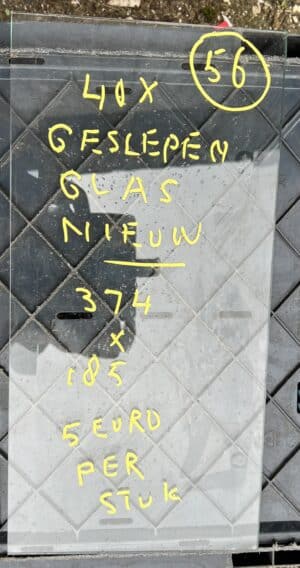 56
40X
GESLEPEN
GLAS
NIEUW
374
X
185
5 EURO
PER
STUK